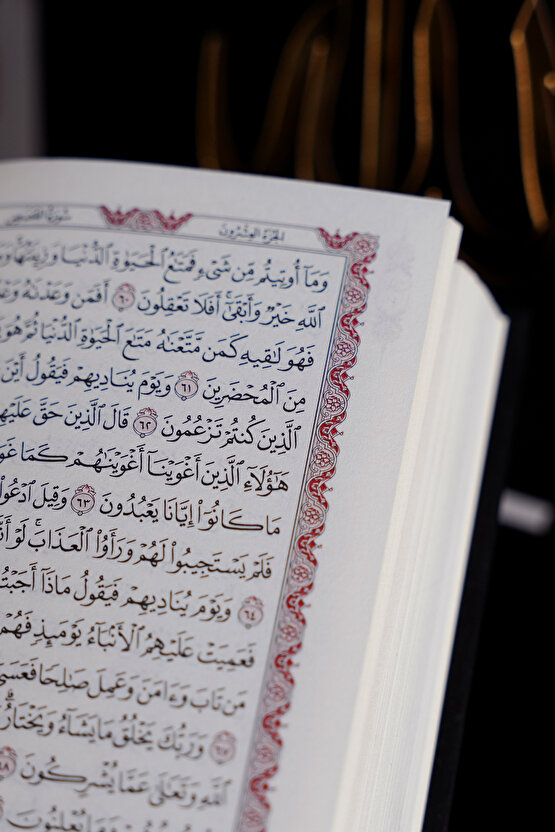 الجزء العشرون سورة القصص
وَمَآ أُوتِيتُم مِّن شَىْءٍ فَمَتَٰعُ ٱلْحَيَوٰةِ ٱلدُّنْيَا وَزِينَتُهَا
ٱللَّهِ خَيْرٌ وَأَبْقَىٰٓ أَفَلَا تَعْقِلُونَ ٦٠ أَفَمَن وَعَدْنَٰهُ
فَهُوَ لَٰقِيهِ كَمَن مَّتَّعْنَٰهُ مَتَٰعَ ٱلْحَيَوٰةِ ٱلدُّنْيَا ثُمَّ هُوَ
مِنَ ٱلْمُحْضَرِينَ ٦١ وَيَوْمَ يُنَادِيهِمْ فَيَقُولُ أَيْنَ
ٱلَّذِينَ كُنتُمْ تَزْعُمُونَ ٦٢ قَالَ ٱلَّذِينَ حَقَّ عَلَيْهِ
هَٰٓؤُلَآءِ ٱلَّذِينَ أَغْوَيْنَآ أَغْوَيْنَٰهُمْ كَمَا
مَا كَانُوٓا۟ إِيَّانَا يَعْبُدُونَ ٦٣ وَقِيلَ ٱدْعُوا۟
فَلَمْ يَسْتَجِيبُوا۟ لَهُمْ وَرَأَوُا۟ ٱلْعَذَابَ لَوْ
٦٤ وَيَوْمَ يُنَادِيهِمْ فَيَقُولُ مَاذَآ
فَعَمِيَتْ عَلَيْهِمُ ٱلْأَنۢبَآءُ يَوْمَئِذٍ فَهُمْ
مَن تَابَ وَءَامَنَ وَعَمِلَ صَٰلِحًا فَعَسَىٰٓ
٦٧ وَرَبُّكَ يَخْلُقُ مَا يَشَآءُ وَيَخْتَارُ
ٱللَّهِ وَتَعَٰلَىٰ عَمَّا يُشْرِكُونَ ٦٨
وَمَا يُعْلِنُونَ